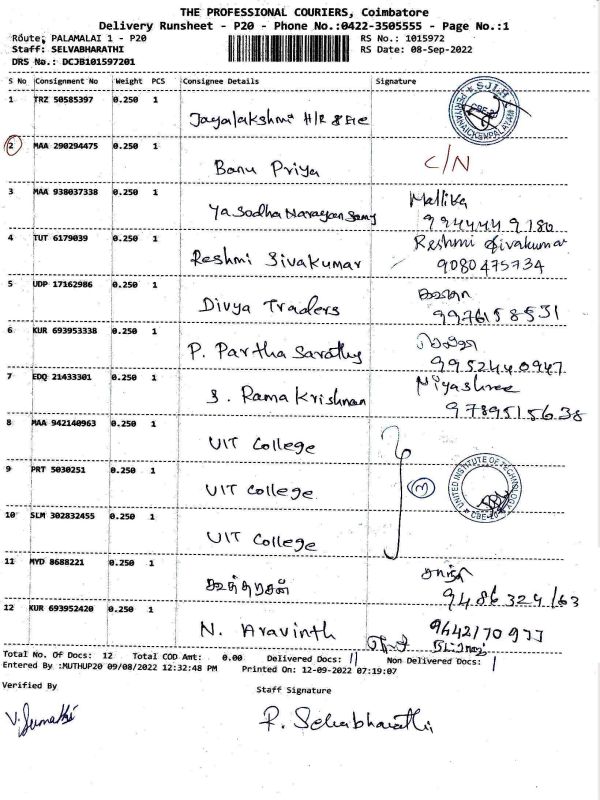 THE PROFESSIONAL COURIERS, Coimbatore
Delivery Runsheet - P20 - Phone No.:0422-3505555 - Page No.:1
Route: PALAMALAI 1 - P20 RS No.: 1015972
Staff: SELVABHARATHI RS Date: 08-Sep-2022
DRS No.: DCJB101597201
S No Consignment No Weight PCS Consignee Details Signature
1 TRZ 50585397 0.250 1 Jayalakshmi H/R & Ele
2 MAA 290294475 0.250 1 Banu Priya C/N
3 MAA 938037338 0.250 1 Yasodha Narayan Samy Mallika
4 TUT 6179039 0.250 1 Reshmi Sivakumar Reshmi Sivakumar
9080475734
5 UDP 17162986 0.250 1 Divya Traders
9976158531
6 KUR 693953338 0.250 1 P. Partha Sarathy
9952440947
7 EDQ 21433301 0.250 1 S. Rama Krishnan Niyashree
9789515638
8 MAA 942140963 0.250 1 UIT College
9 PRT 5030251 0.250 1 UIT College
UNITED INSTITUTE OF TECHNOLOGY
10 SLM 302832455 0.250 1 UIT College
11 MYD 8688221 0.250 1
9486324163
12 KUR 693952420 0.250 1 N. Aravinth 9642170977
Total No. Of Docs: 12 Total COD Amt: 0.00 Delivered Docs: 11 Non Delivered Docs: 1
Entered By :MUTHUP20 09/08/2022 12:32:48 PM Printed On: 12-09-2022 07:19:07
Verified By Staff Signature
V. Sumathi P. Selvabharathi